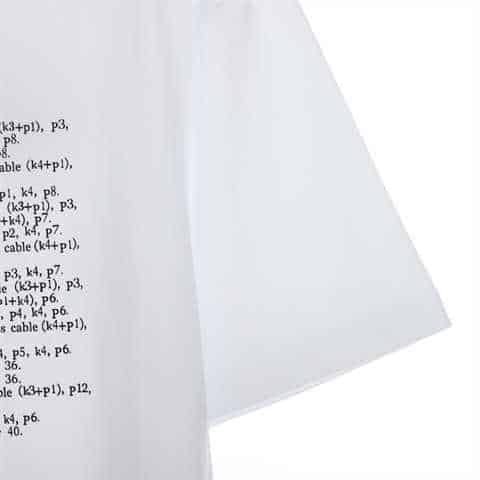 (k3+p1), p3,
p8.
8.
able (k4+p1),
p1, k4, p8.
(k3+p1), p3,
+k4), p7.
p2, k4, p7.
cable (k4+p1),
p3, k4, p7.
le (k3+p1), p3,
p1+k4), p6.
, p4, k4, p6.
s cable (k4+p1),
4, p5, k4, p6.
36.
36.
ble (k3+p1), p12,
k4, p6.
40.